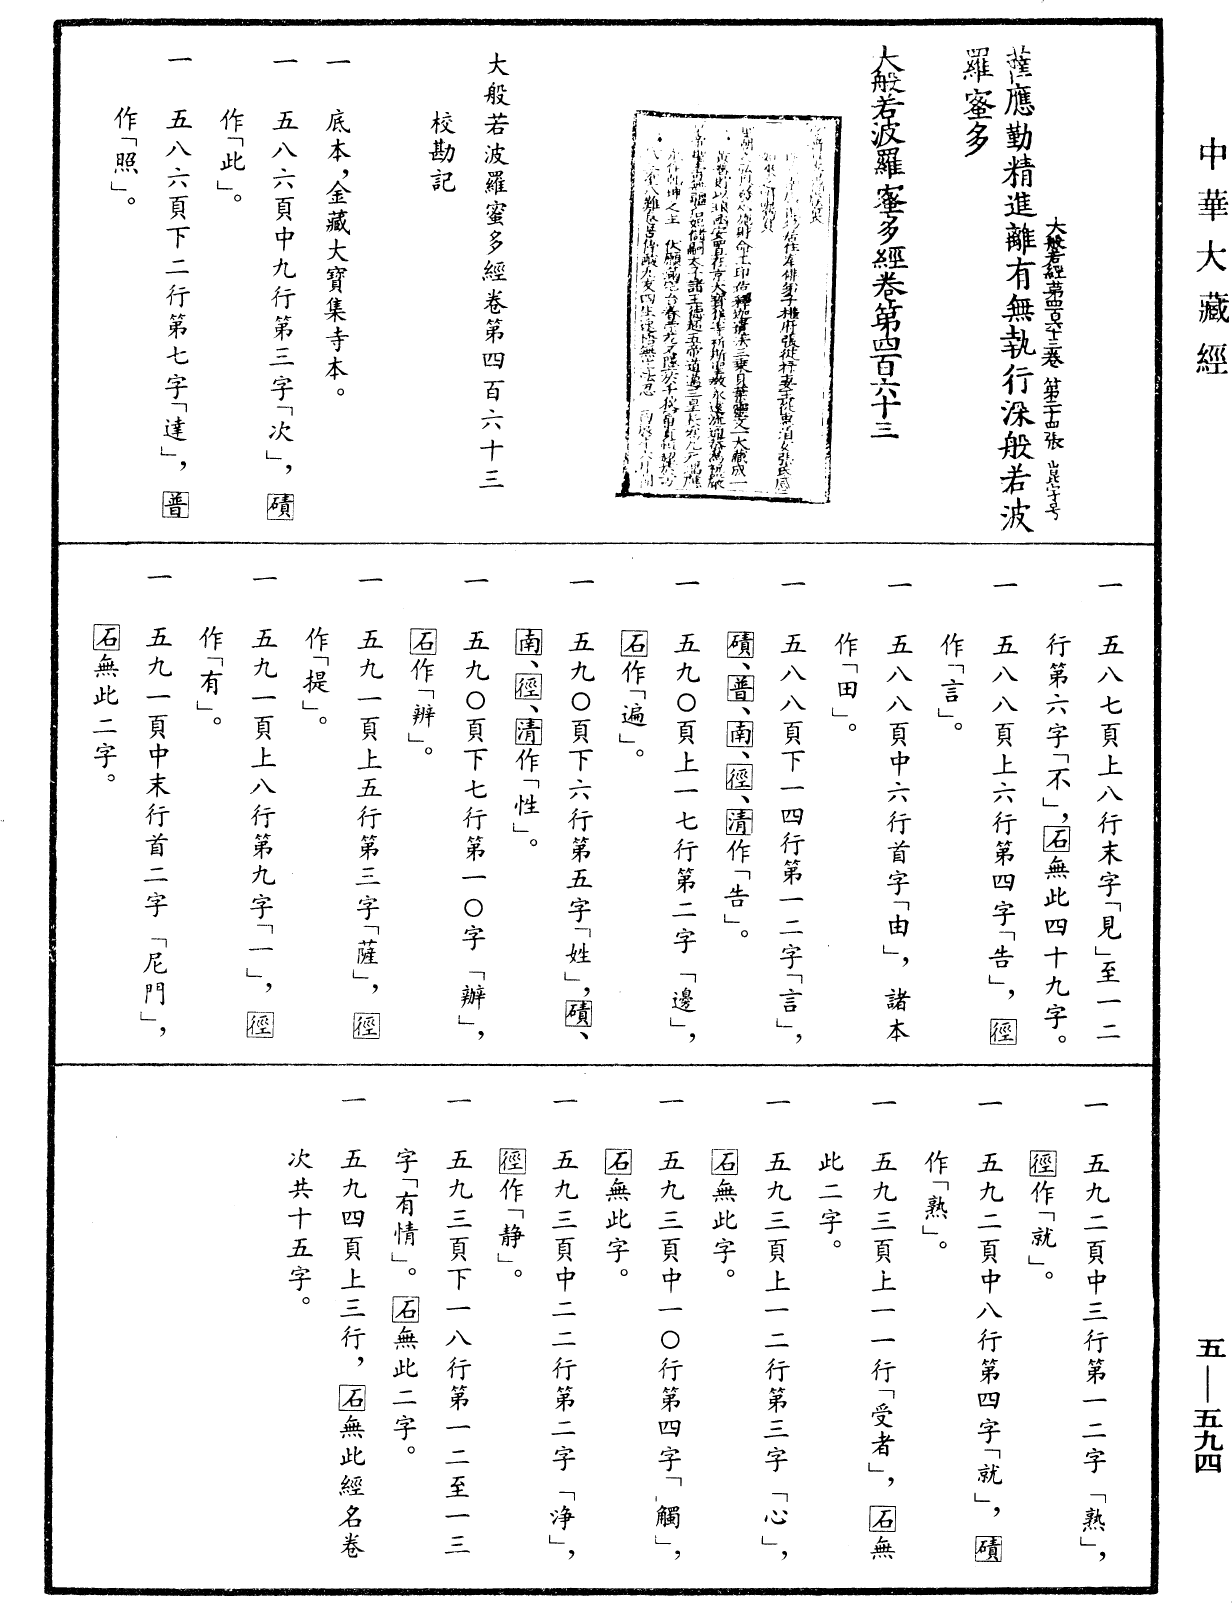 中華大藏經
五—五九四
薩應勤精進離有無執行深般若波
羅蜜多
大般若經第四百六十三卷 第二十四張 崑字号
大般若波羅蜜多經卷第四百六十三
大般若波羅蜜多經卷第四百六十三
校勘記
一 底本,金藏大寶集寺本。
一 五八六頁中九行第三字「次」,磧
作「此」。
一 五八六頁下二行第七字「達」,普
作「照」。
一 五八七頁上八行末字「見」至一二
行第六字「不」,石無此四十九字。
一 五八八頁上六行第四字「告」,徑
作「言」。
一 五八八頁中六行首字「由」,諸本
作「田」。
一 五八八頁下一四行第一二字「言」,
磧、普、南、徑、清作「告」。
一 五九〇頁上一七行第二字「邊」,
石作「遍」。
一 五九〇頁下六行第五字「姓」,磧、
南、徑、清作「性」。
一 五九〇頁下七行第一〇字「辦」,
石作「辨」。
一 五九一頁上五行第三字「薩」,徑
作「提」。
一 五九一頁上八行第九字「一」,徑
作「有」。
一 五九一頁中末行首二字「尼門」,
石無此二字。
一 五九二頁中三行第一二字「熟」,
徑作「就」。
一 五九二頁中八行第四字「就」,磧
作「熟」。
一 五九三頁上一一行「受者」,石無
此二字。
一 五九三頁上一二行第三字「心」,
石無此字。
一 五九三頁中一〇行第四字「觸」,
石無此字。
一 五九三頁中二二行第二字「净」,
徑作「静」。
一 五九三頁下一八行第一二至一三
字「有情」。石無此二字。
一 五九四頁上三行,石無此經名卷
次共十五字。